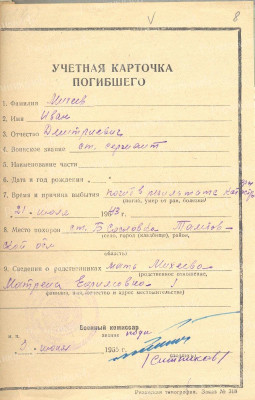 8
УЧЕТНАЯ КАРТОЧКА
ПОГИБШЕГО
1. Фамилия Михеев
2. Имя Иван
3. Отчество Дмитриевич
4. Воинское звание ст. сержант
5. Наименование части
6. Дата и год рождения
7. Время и причина выбытия погиб в результате
(погиб, умер от ран, болезни)
21 июля 1943 г.
8. Место похорон ст. Тамбов-
(село, город (кладбище), район,
ской обл
область)
9. Сведения о родственниках мать Михеева
(родственное отношение,
Матрена
фамилия, имя, отчество и адрес местожительства)
Военный комиссар
м. п.
звание
июля 195 г.
(Ситников)